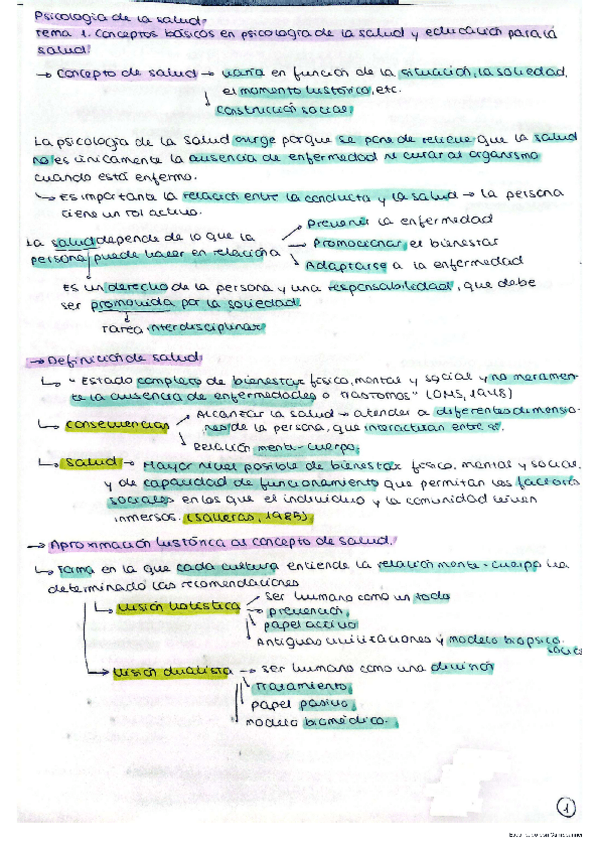 Psicología de la salud.
Tema 1. Conceptos básicos en psicología de la salud y educación para la
salud.
→ Concepto de salud → varía en función de la situación, la sociedad,
el momento histórico, etc.
construcción social.
La psicología de la salud surge porque se pone de relieve que la salud
no es únicamente la ausencia de enfermedad ni curar al organismo
cuando está enfermo.
↳ Es importante la relación entre la conducta y la salud → la persona
tiene un rol activo.
La salud depende de lo que la
persona puede hacer en relación a
Prevenir la enfermedad
Promocionar el bienestar
Adaptarse a la enfermedad
Es un derecho de la persona y una responsabilidad, que debe
ser promovida por la sociedad.
Tarea interdisciplinar
→ Definición de salud
↳ "Estado completo de bienestar físico, mental y social y no meramen-
te la ausencia de enfermedades o trastornos" (OMS, 1948)
↳ Consecuencias
Alcanzar la salud → atender a diferentes dimensio-
nes de la persona, que interactúan entre sí.
Relación mente-cuerpo.
↳ Salud → Mayor nivel posible de bienestar físico, mental y social,
y de capacidad de funcionamiento que permitan los factores
sociales en los que el individuo y la comunidad viven
inmersos. (Salleras, 1985)
→ Aproximación histórica al concepto de salud.
↳ Forma en la que cada cultura entiende la relación mente-cuerpo ha
determinado las recomendaciones
Visión holística
ser humano como un todo
prevención
papel activo
Antiguas civilizaciones y modelo biopsico
social
Visión dualista → ser humano como una división
Tratamiento
papel pasivo
modelo biomédico.
1